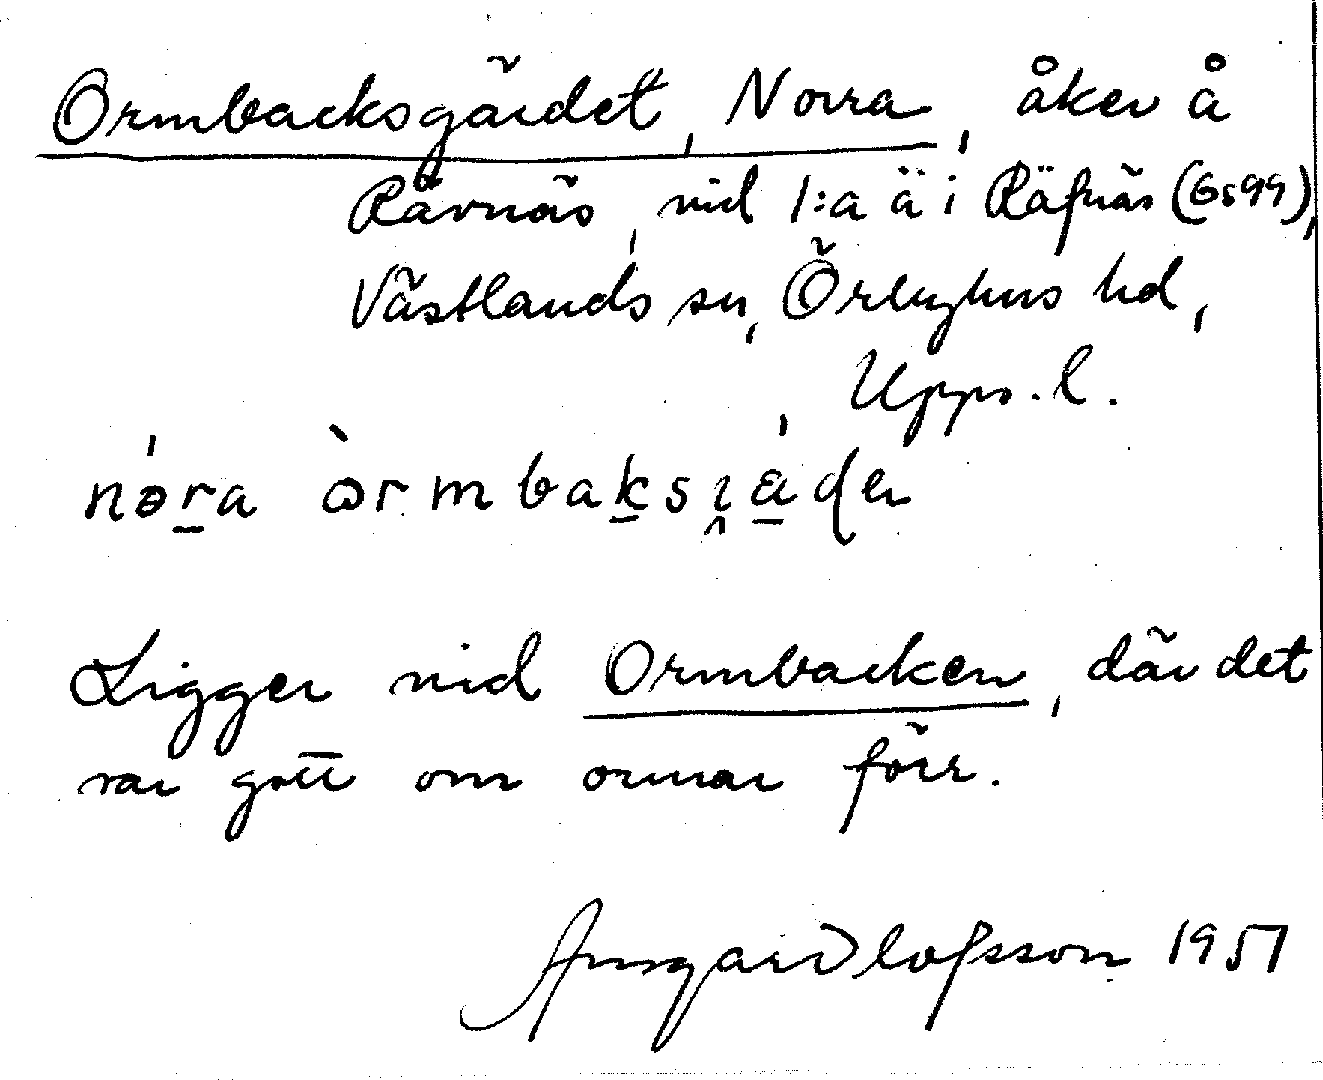 Ormbacksgärdet, Norra, åker å
Rävnäs, vid 1:a ä i Räfnäs (Gs99),
Västlands sn, Örbyhus hd,
Upps. l.
Ligger vid Ormbacken, där det
var gott om ormar förr.
Ansgar Olofsson 1951